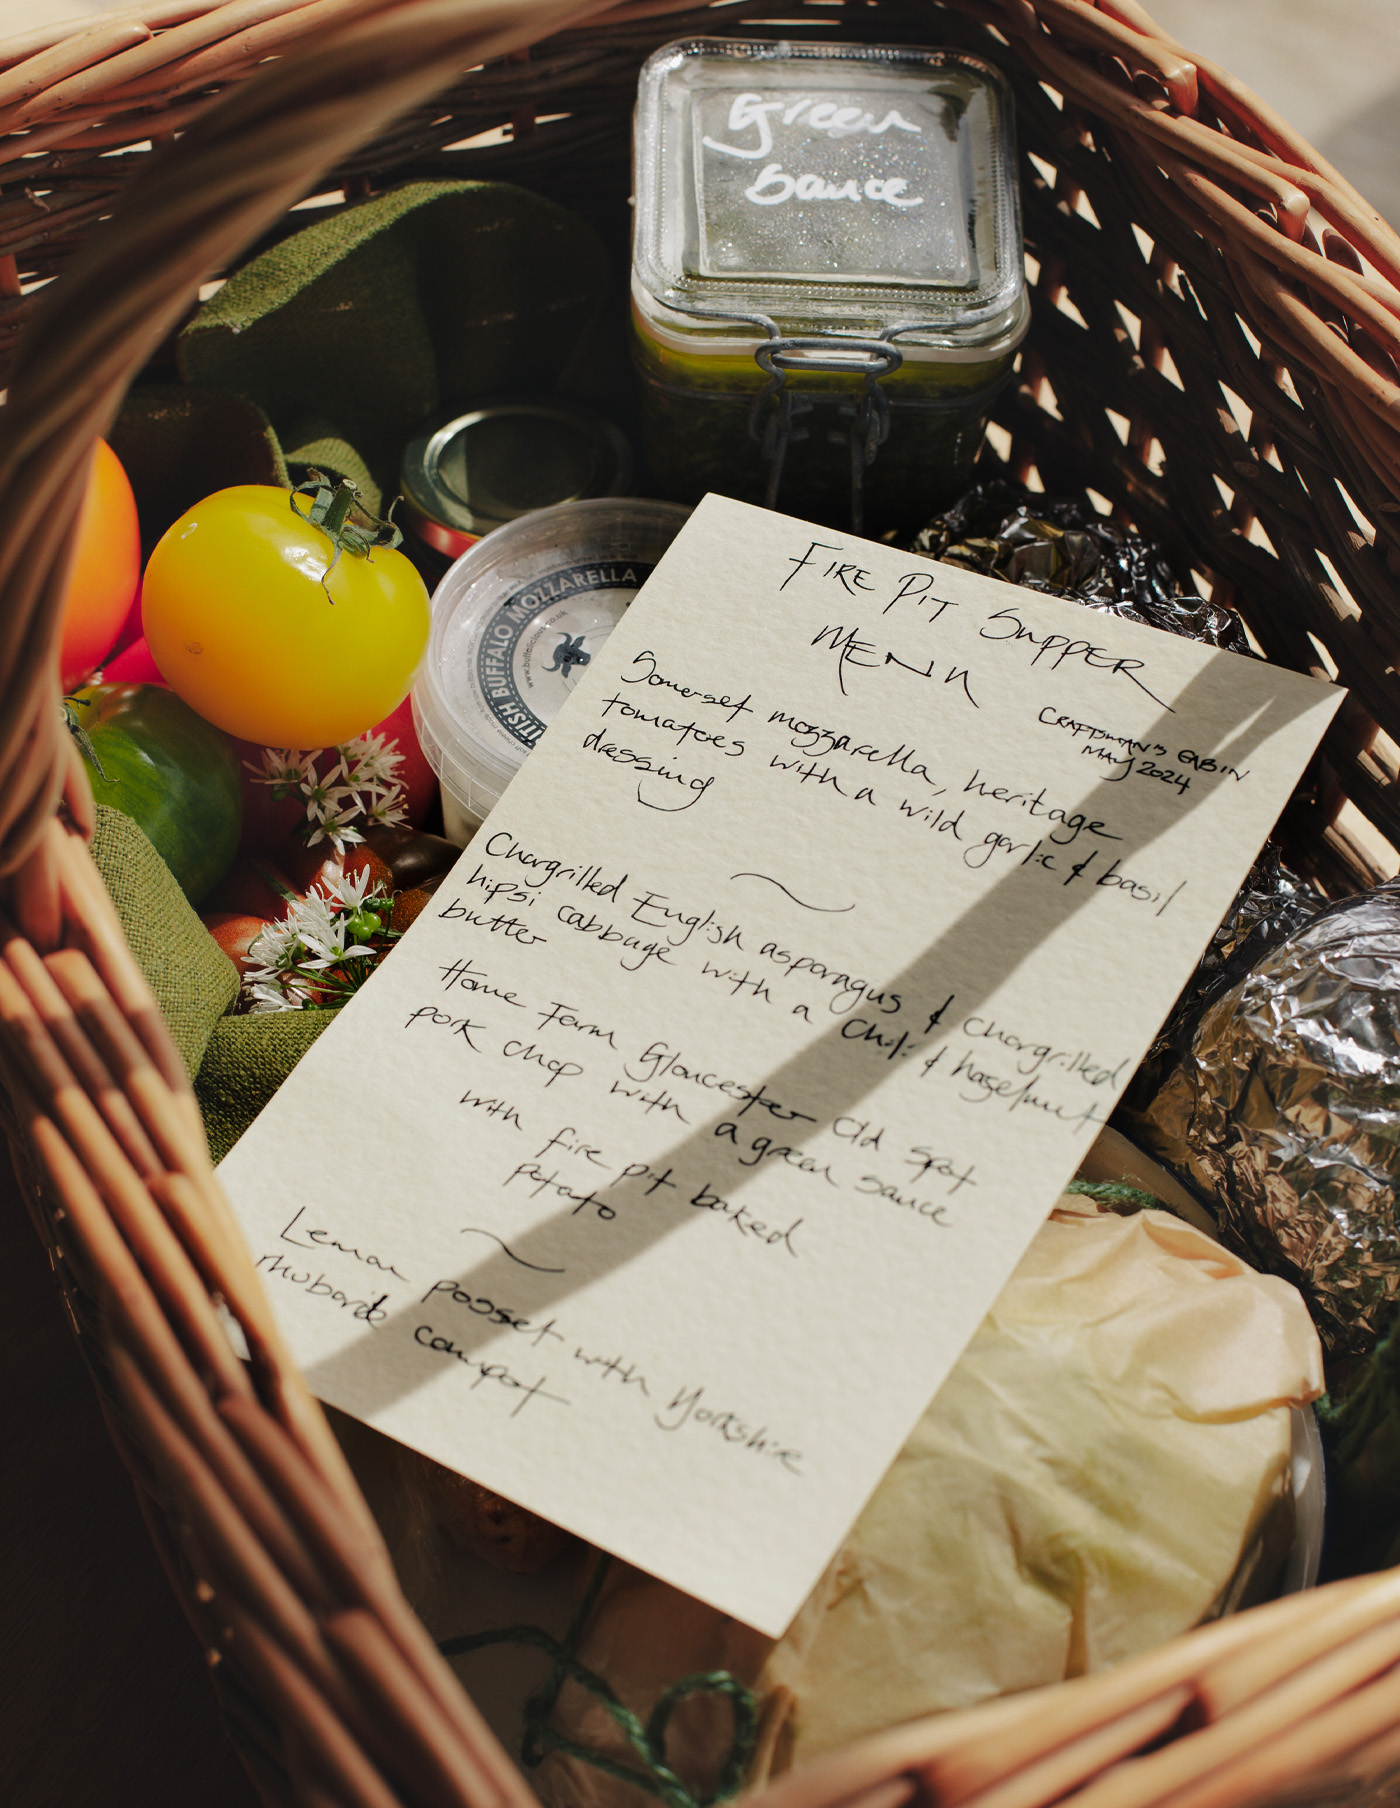 Green
Sauce
BUFFALO MOZZARELLA
www.buffalicious.co.uk
FIRE PIT SUPPER
MENU
CRAFTSMAN'S CABIN
MAY 2024
Somerset mozzarella, heritage
tomatoes with a wild garlic & basil
dressing
Chargrilled English asparagus & chargrilled
hipsi cabbage with a chili & hazelnut
butter
Home Farm Gloucester Old Spot
pork chop with a green sauce
with fire pit baked
potato
Lemon posset with Yorkshire
rhubarb compot